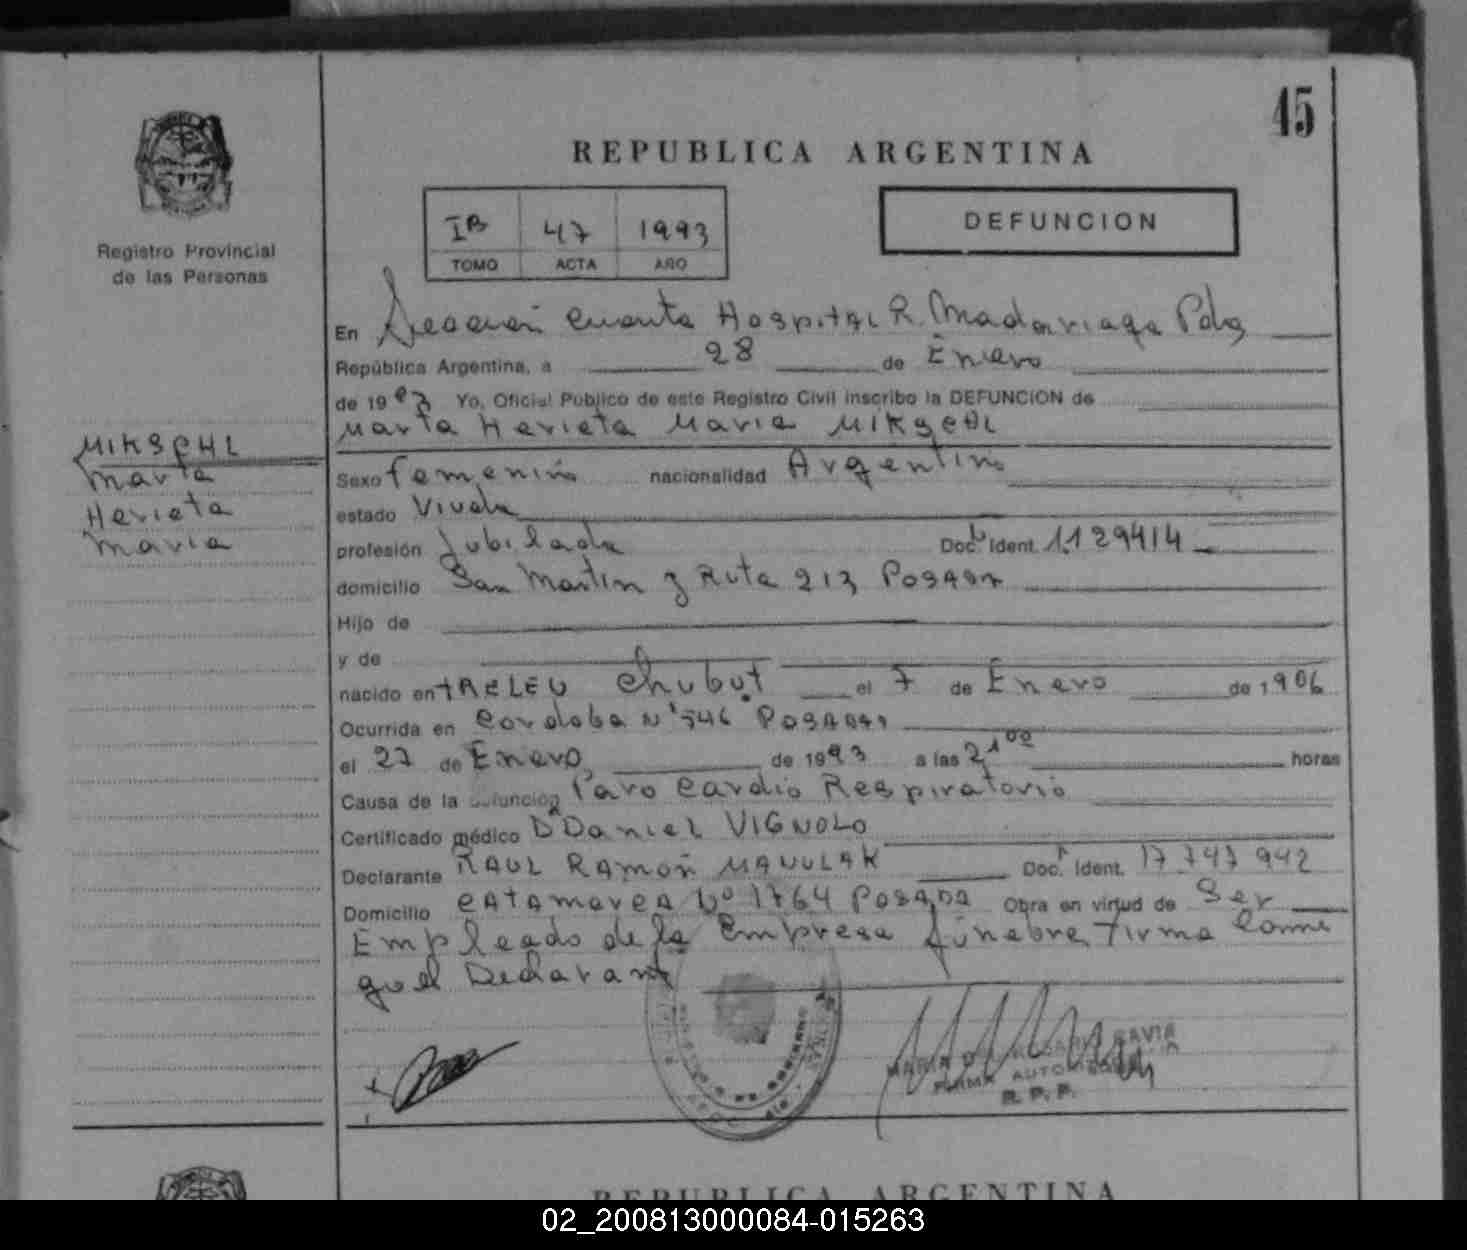 45
REPUBLICA ARGENTINA
IB 47 1993
TOMO ACTA AÑO
DEFUNCION
Registro Provincial
de las Personas
MIKSCHL
Marta
Herieta
Maria
En Sección Cuarta Hospital R. Madariaga Pdas
República Argentina, a 28 de Enero
de 1993 Yo, Oficial Público de este Registro Civil inscribo la DEFUNCION de
Marta Herieta Maria MIKSCHL
Sexo femenino nacionalidad Argentino
estado Viuda
profesión Jubilada Doc. Ident. 1.129414
domicilio San Martin y Ruta 213 Posadas
Hijo de
y de
nacido en TRELEU Chubut el 7 de Enero de 1906
Ocurrida en Cordoba Nº 546 Posadas
el 27 de Enero de 1993 a las 21 00 horas
Causa de la defunción Paro Cardio Respiratorio
Certificado médico Dr Daniel VIGNOLO
Declarante RAUL RAMON MANULAK Doc. Ident. 17.747.942
Domicilio CATAMARCA Nº 1764 POSADA Obra en virtud de Ser
Empleado de la Empresa fúnebre firma conmi
go el Declarant
MARIA RAVIA
FIRMA AUTORIZADA
R. P. P.
REPUBLICA ARGENTINA
02_200813000084-015263